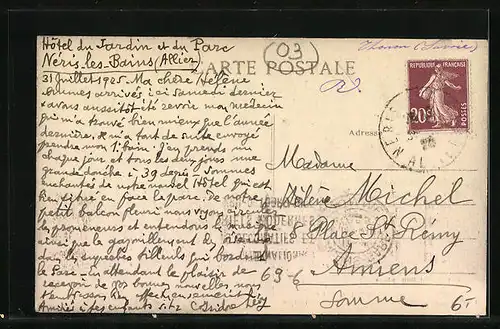 Hôtel du Jardin et du Parc
Néris-les-Bains (Allier)
(03)
CARTE POSTALE
REPUBLIQUE FRANÇAISE
20c
POSTES
31 Juillet 1925. Ma chère Hélène
Sommes arrivés ici samedi dernier
avons aussitôt été revoir mon médecin
qui m'a trouvé bien mieux que l'année
dernière. Il m'a tout de suite envoyé
prendre mon 1er bain. J'en prends un
chaque jour et tous les deux jours une
grande douche à 39 degrés. Sommes
enchantés de notre nouvel Hôtel qui est
bien situé en face le parc. De notre
petit balcon fleuri nous voyons circuler
les promeneurs et entendons la musique
ainsi que le gazouillement des oiseaux
dans les superbes tilleuls qui bordent
le Parc. En attendant le plaisir de
recevoir de vos bonnes nouvelles, nous
Adresse
Madame
Hélène Michel
8 Place St Rémy
Amiens
Somme
69-6
6-